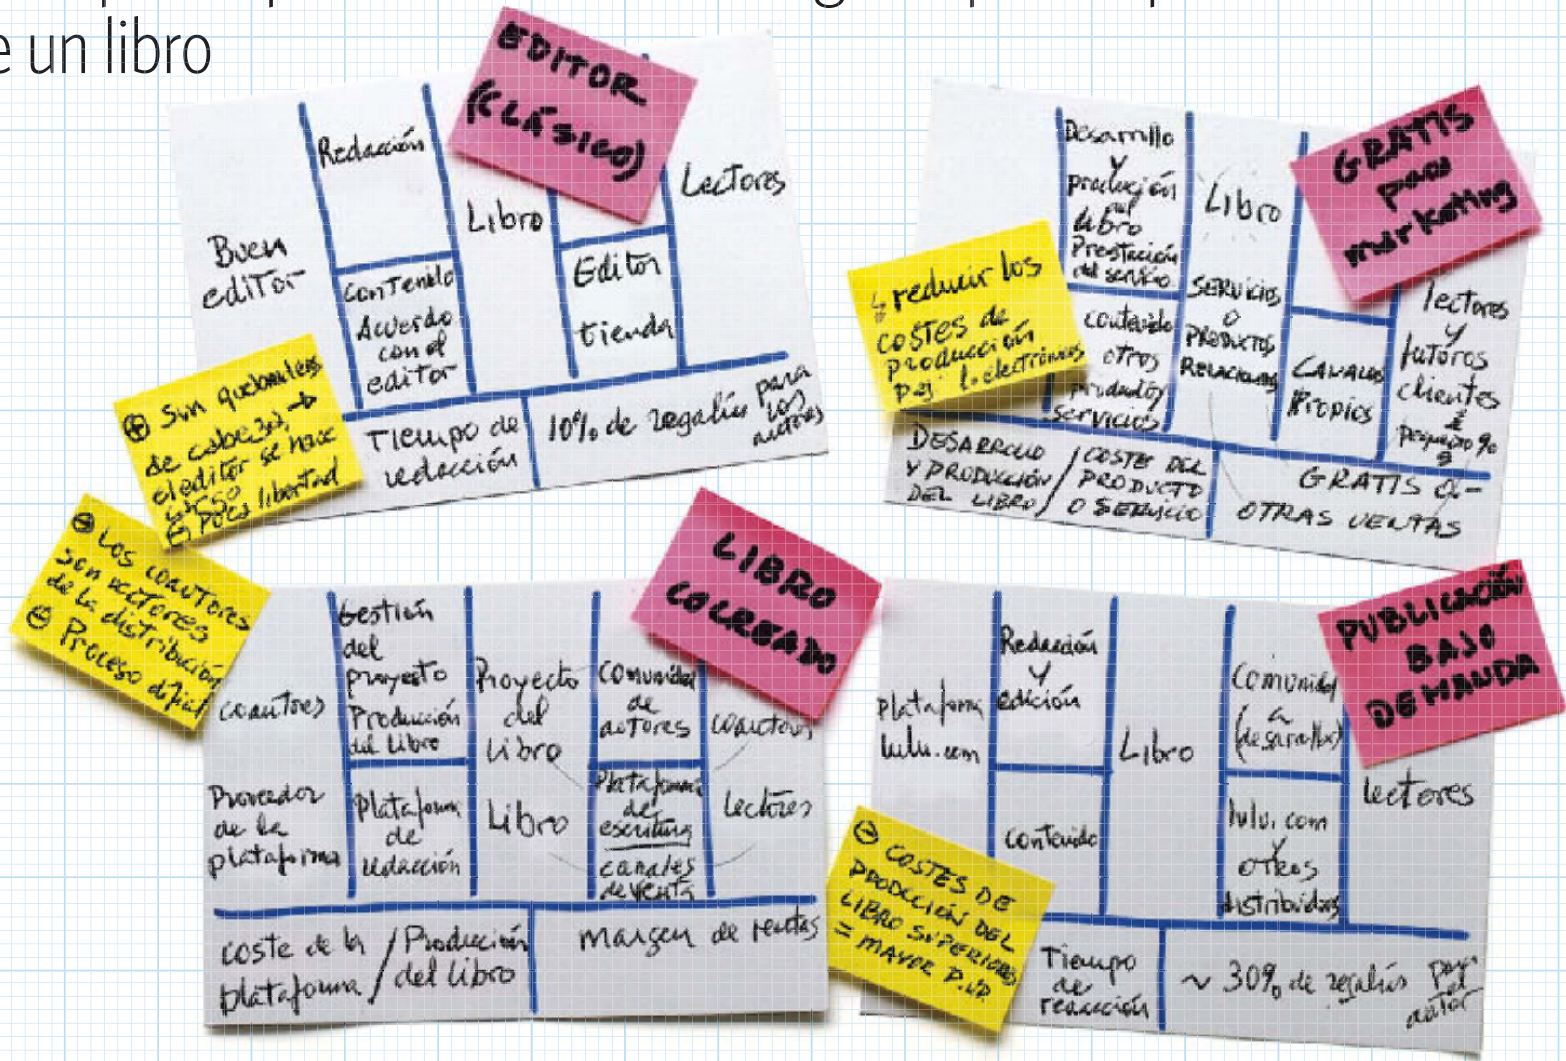 e un libro
EDITOR
(CLÁSICO)
Buen
editor
Redacción
Contenido
Acuerdo
con el
editor
Libro
Editor
tienda
Lectores
Tiempo de
redacción
10% de regalías para
los
autores
⊕ Sin quebraderos
de cabeza →
el editor se hace
⊖ Poca libertad
GRATIS
para
marketing
Desarrollo
y
producción
del
libro
Prestación
del servicio
contenido
otros
productos
servicios
Libro
SERVICIOS
O
PRODUCTOS
RELACIONADOS
CANALES
PROPIOS
lectores
y
futuros
clientes
pequeño %
DESARROLLO
Y PRODUCCIÓN
DEL LIBRO /
COSTES DEL
PRODUCTO
O SERVICIO
GRATIS
OTRAS VENTAS
↳ reducir los
costes de
producción
p.ej. l. electrónicos
LIBRO
COCREADO
⊖ Los coautores
son vectores
de la distribución
⊖ Proceso difícil
coautores
Proveedor
de la
plataforma
Gestión
del
proyecto
Producción
del libro
Plataforma
de
redacción
Proyecto
del
libro
Libro
Comunidad
de
autores
Plataforma
de
escritura
canales
de venta
coautores
Lectores
coste de la
plataforma /
Producción
del libro
margen de
PUBLICACIÓN
BAJO
DEMANDA
Plataforma
lulu.com
Redacción
y
edición
contenido
Libro
Comunidad
(a
desarrollar)
lulu.com
y
otros
distribuidores
lectores
Tiempo
de
~ 30% de regalías para
el
autor
⊖ COSTES DE
PRODUCCIÓN DEL
LIBRO SUPERIORES
= MAYOR P.V.P.